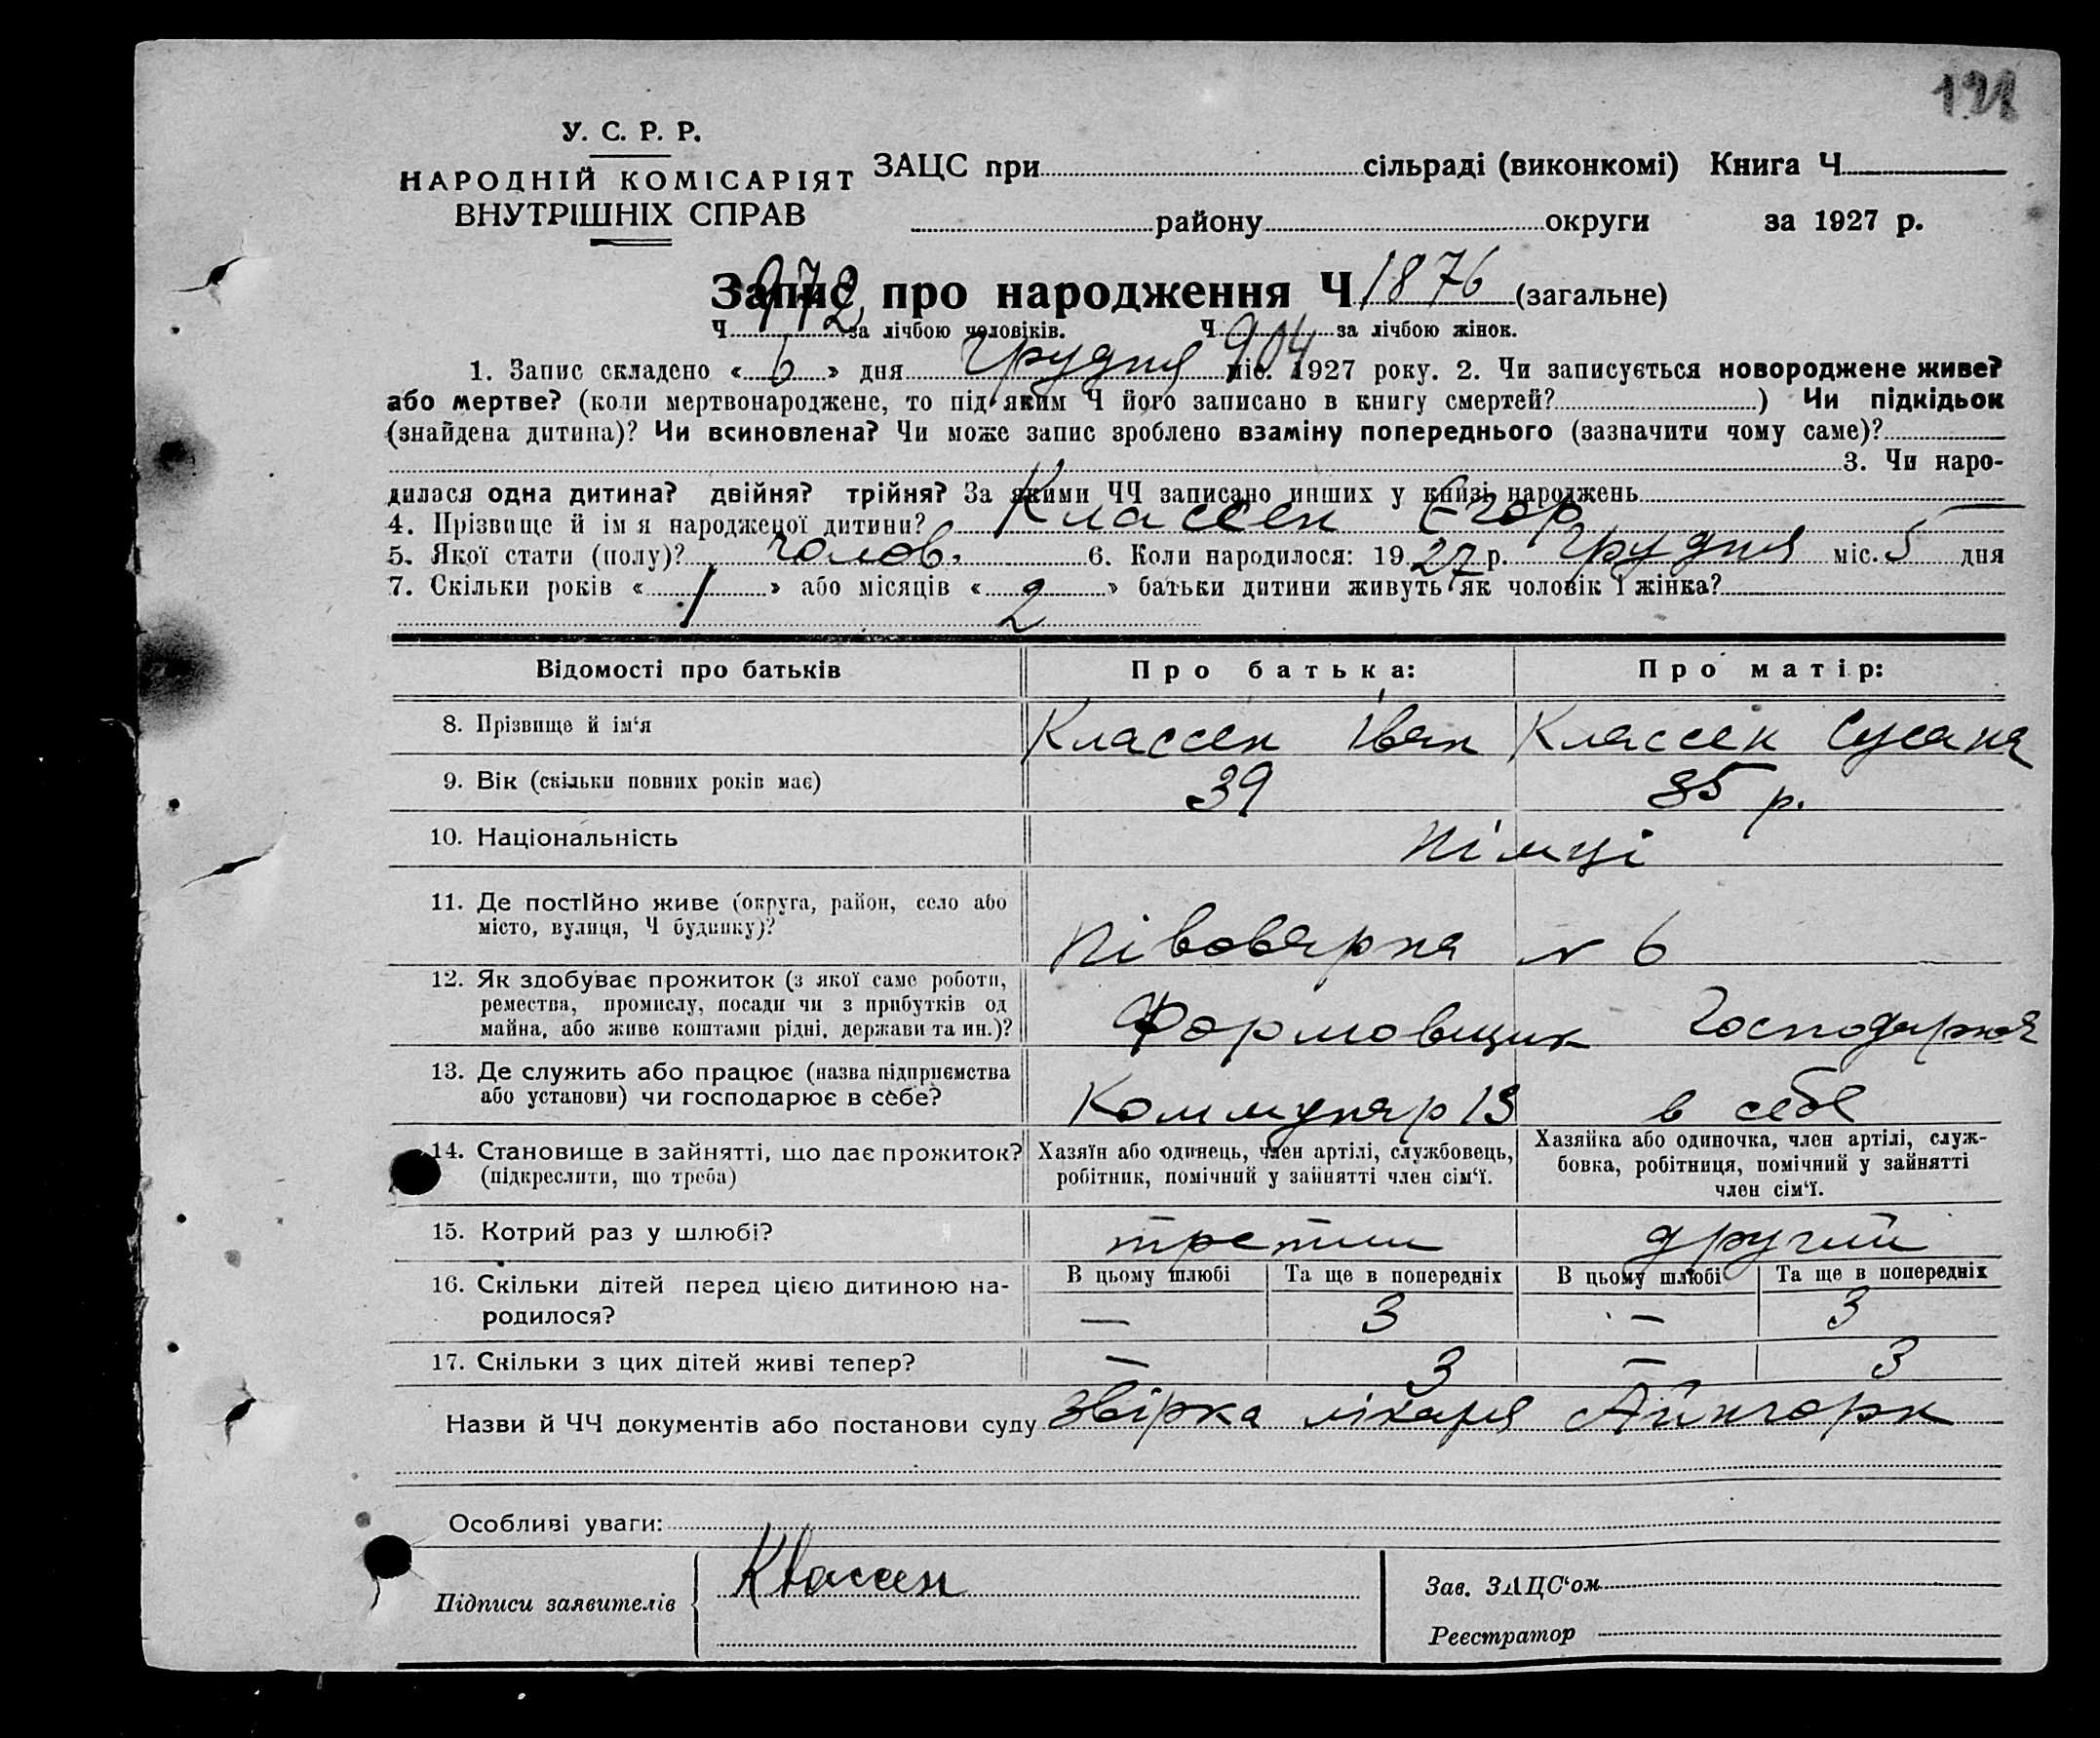 У. С. Р. Р.
НАРОДНІЙ КОМІСАРІЯТ
ВНУТРІШНІХ СПРАВ
ЗАЦС при сільраді (виконкомі) Книга Ч
району округи за 1927 р.
Запис про народження Ч 1876 (загальне)
Ч 972 за лічбою чоловіків. Ч 904 за лічбою жінок.
1. Запис складено « 6 » дня грудня міс. 1927 року. 2. Чи записується новороджене живе?
або мертве? (коли мертвонароджене, то під яким Ч його записано в книгу смертей? ) Чи підкідьок
(знайдена дитина)? Чи всиновлена? Чи може запис зроблено взаміну попереднього (зазначити чому саме)?
3. Чи наро-
дилася одна дитина? двійня? трійня? За якими ЧЧ записано инших у книзі народжень
4. Прізвище й ім я народженої дитини? Классен Єгор
5. Якої стати (полу)? чолов. 6. Коли народилося: 19 27 р. грудня міс. 5 дня
7. Скільки років « 1 » або місяців « 2 » батьки дитини живуть як чоловік і жінка?
Відомості про батьків Про батька: Про матір:
8. Прізвище й ім‘я Классен Іван Классен Сусана
9. Вік (скільки повних років має) 39 35 р.
10. Національність Німці
11. Де постійно живе (округа, район, село або
місто, вулиця, Ч будинку)? Півоварна № 6
12. Як здобуває прожиток (з якої саме роботи,
ремества, промислу, посади чи з прибутків од
майна, або живе коштами рідні, держави та ин.)? Формовщик Господарня
13. Де служить або працює (назва підприємства
або установи) чи господарює в себе? Коммунар 13 в себе
14. Становище в зайнятті, що дає прожиток?
(підкреслити, що треба)
Хазяїн або одинець, член артілі, службовець,
робітник, помічний у зайнятті член сім‘ї.
Хазяйка або одиночка, член артілі, служ-
бовка, робітниця, помічний у зайнятті
член сім‘ї.
15. Котрий раз у шлюбі? третий другий
16. Скільки дітей перед цією дитиною на-
родилося?
В цьому шлюбі Та ще в попередніх В цьому шлюбі Та ще в попередніх
— 3 — 3
17. Скільки з цих дітей живі тепер? — 3 — 3
Назви й ЧЧ документів або постанови суду Звірка лікаря Айнгорн
Особливі уваги:
Підписи заявителів Классен
Зав. ЗАЦС‘ом
Реєстратор